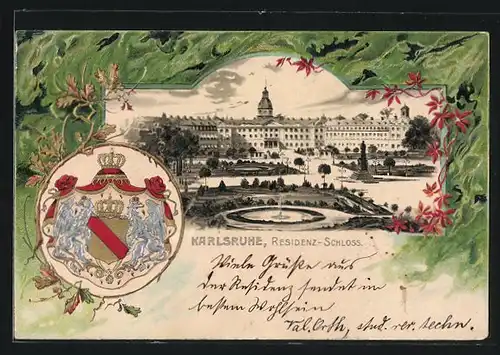 KARLSRUHE, RESIDENZ-SCHLOSS.
Viele Grüße aus
der Residenz sendet in
bestem Wohlsein
Val. Orth, stud. rer. techn.